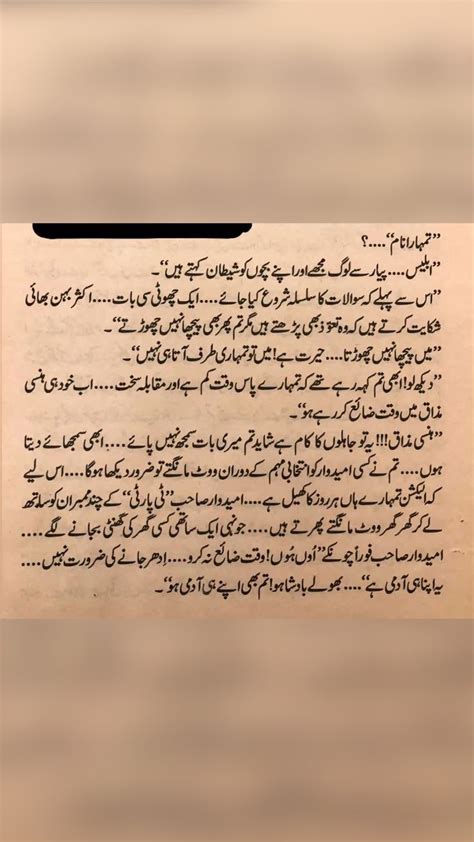 ”تمہارا نام“....؟
”ابلیس....پیار سے لوگ مجھے اور اپنے بچوں کو شیطان کہتے ہیں“۔
”اس سے پہلے کہ سوالات کا سلسلہ شروع کیا جائے....ایک چھوٹی سی بات....اکثر بہن بھائی
شکایت کرتے ہیں کہ وہ تعوّذ بھی پڑھتے ہیں مگر تم پھر بھی پیچھا نہیں چھوڑتے“۔
”میں پیچھا نہیں چھوڑتا....حیرت ہے! میں تو تمہاری طرف آتا ہی نہیں“۔
”دیکھ لو! ابھی تم کہہ رہے تھے کہ تمہارے پاس وقت کم ہے اور مقابلہ سخت....اب خود ہی ہنسی
مذاق میں وقت ضائع کر رہے ہو“۔
”ہنسی مذاق!!! یہ تو جاہلوں کا کام ہے شاید تم میری بات سمجھ نہیں پائے....ابھی سمجھائے دیتا
ہوں....تم نے کسی امیدوار کو انتخابی مہم کے دوران ووٹ مانگتے تو ضرور دیکھا ہوگا....اس لیے
کہ الیکشن تمہارے ہاں ہر روز کا کھیل ہے....امیدوار صاحب ”ٹی پارٹی“ کے چند ممبران کو ساتھ
لے کر گھر گھر ووٹ مانگتے پھرتے ہیں....جونہی ایک ساتھی کسی گھر کی گھنٹی بجانے لگے....
امیدوار صاحب فوراً چونکے ”اُوں ہُوں! وقت ضائع نہ کرو....اِدھر جانے کی ضرورت نہیں....
یہ اپنا ہی آدمی ہے“....بھولے بادشاہو! تم بھی اپنے ہی آدمی ہو“۔